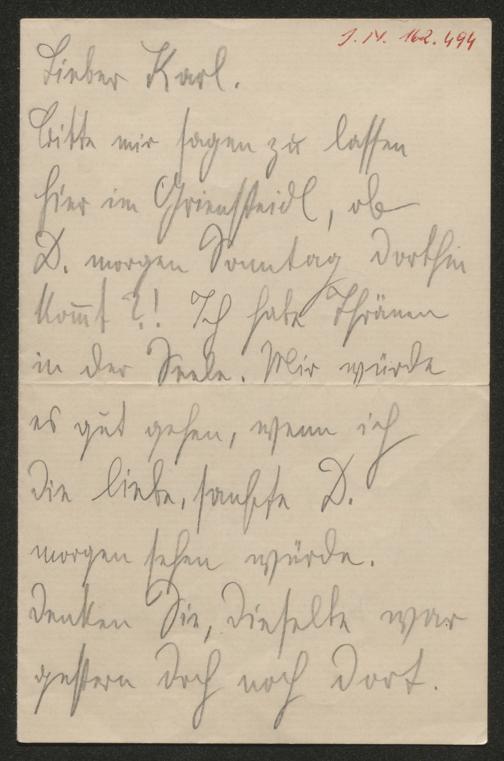 J.N. 162.494
Lieber Karl.
Bitte mir sagen zu lassen
hier im Griensteidl, ob
D. morgen Sonntag dorthin
kom̄t?! Ich habe Thränen
in der Seele. Mir würde
es gut gehen, wenn ich
die liebe, sanfte D.
morgen sehen würde.
Denken Sie, dieselbe war
gestern doch noch dort.